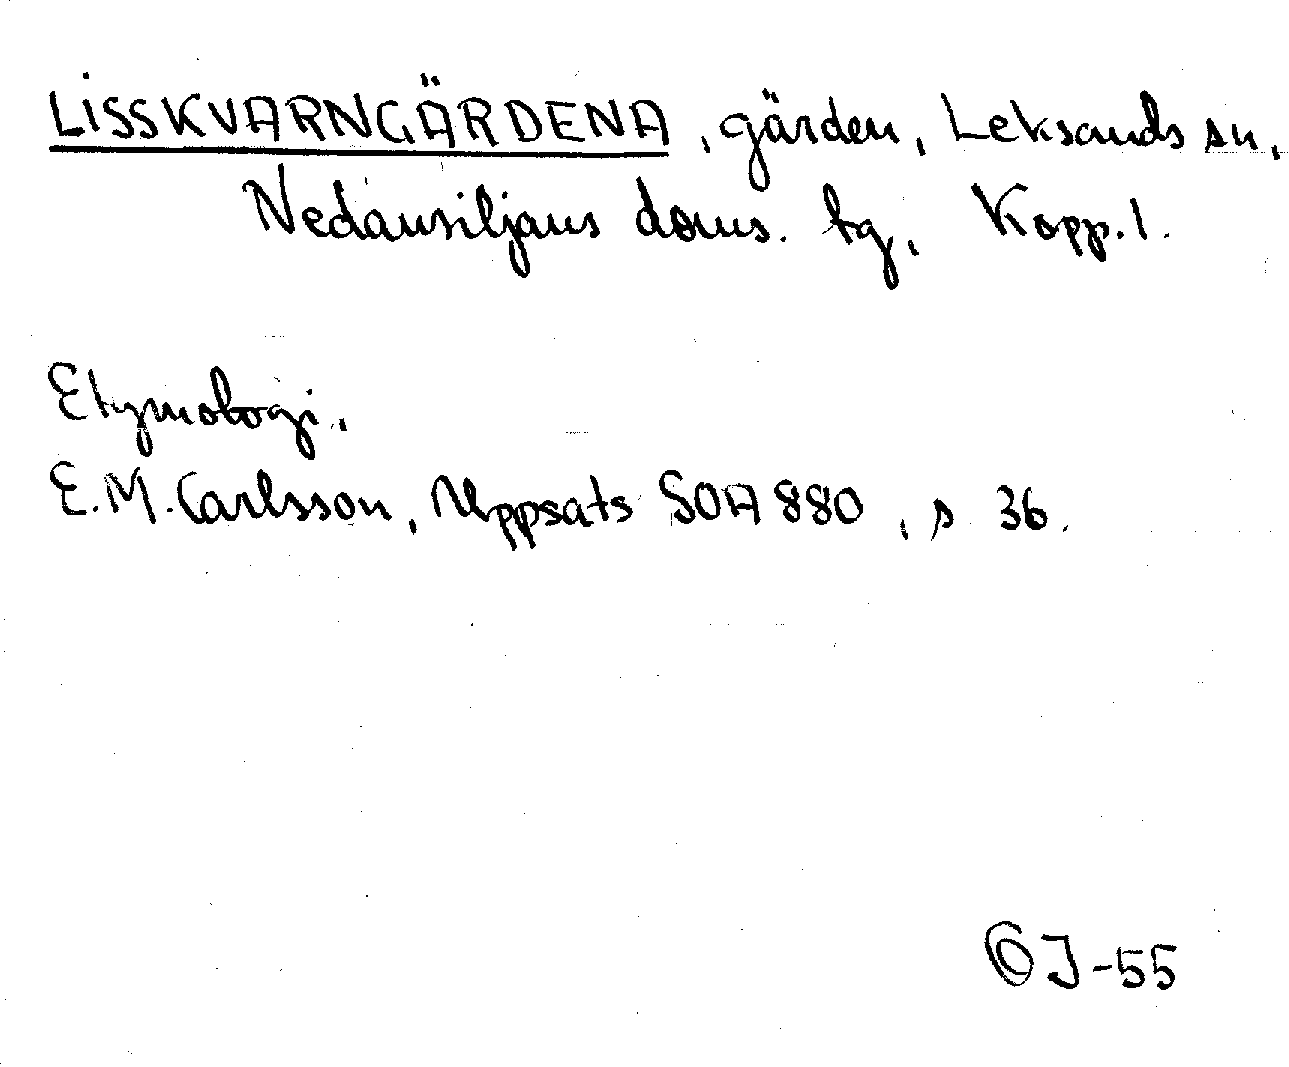 LISSKVARNGÄRDENA, gärden, Leksands sn,
Nedansiljans doms. tg, Kopp. l.
Etymologi.
E.M. Carlsson, Uppsats SOA 880, s 36.
J-55